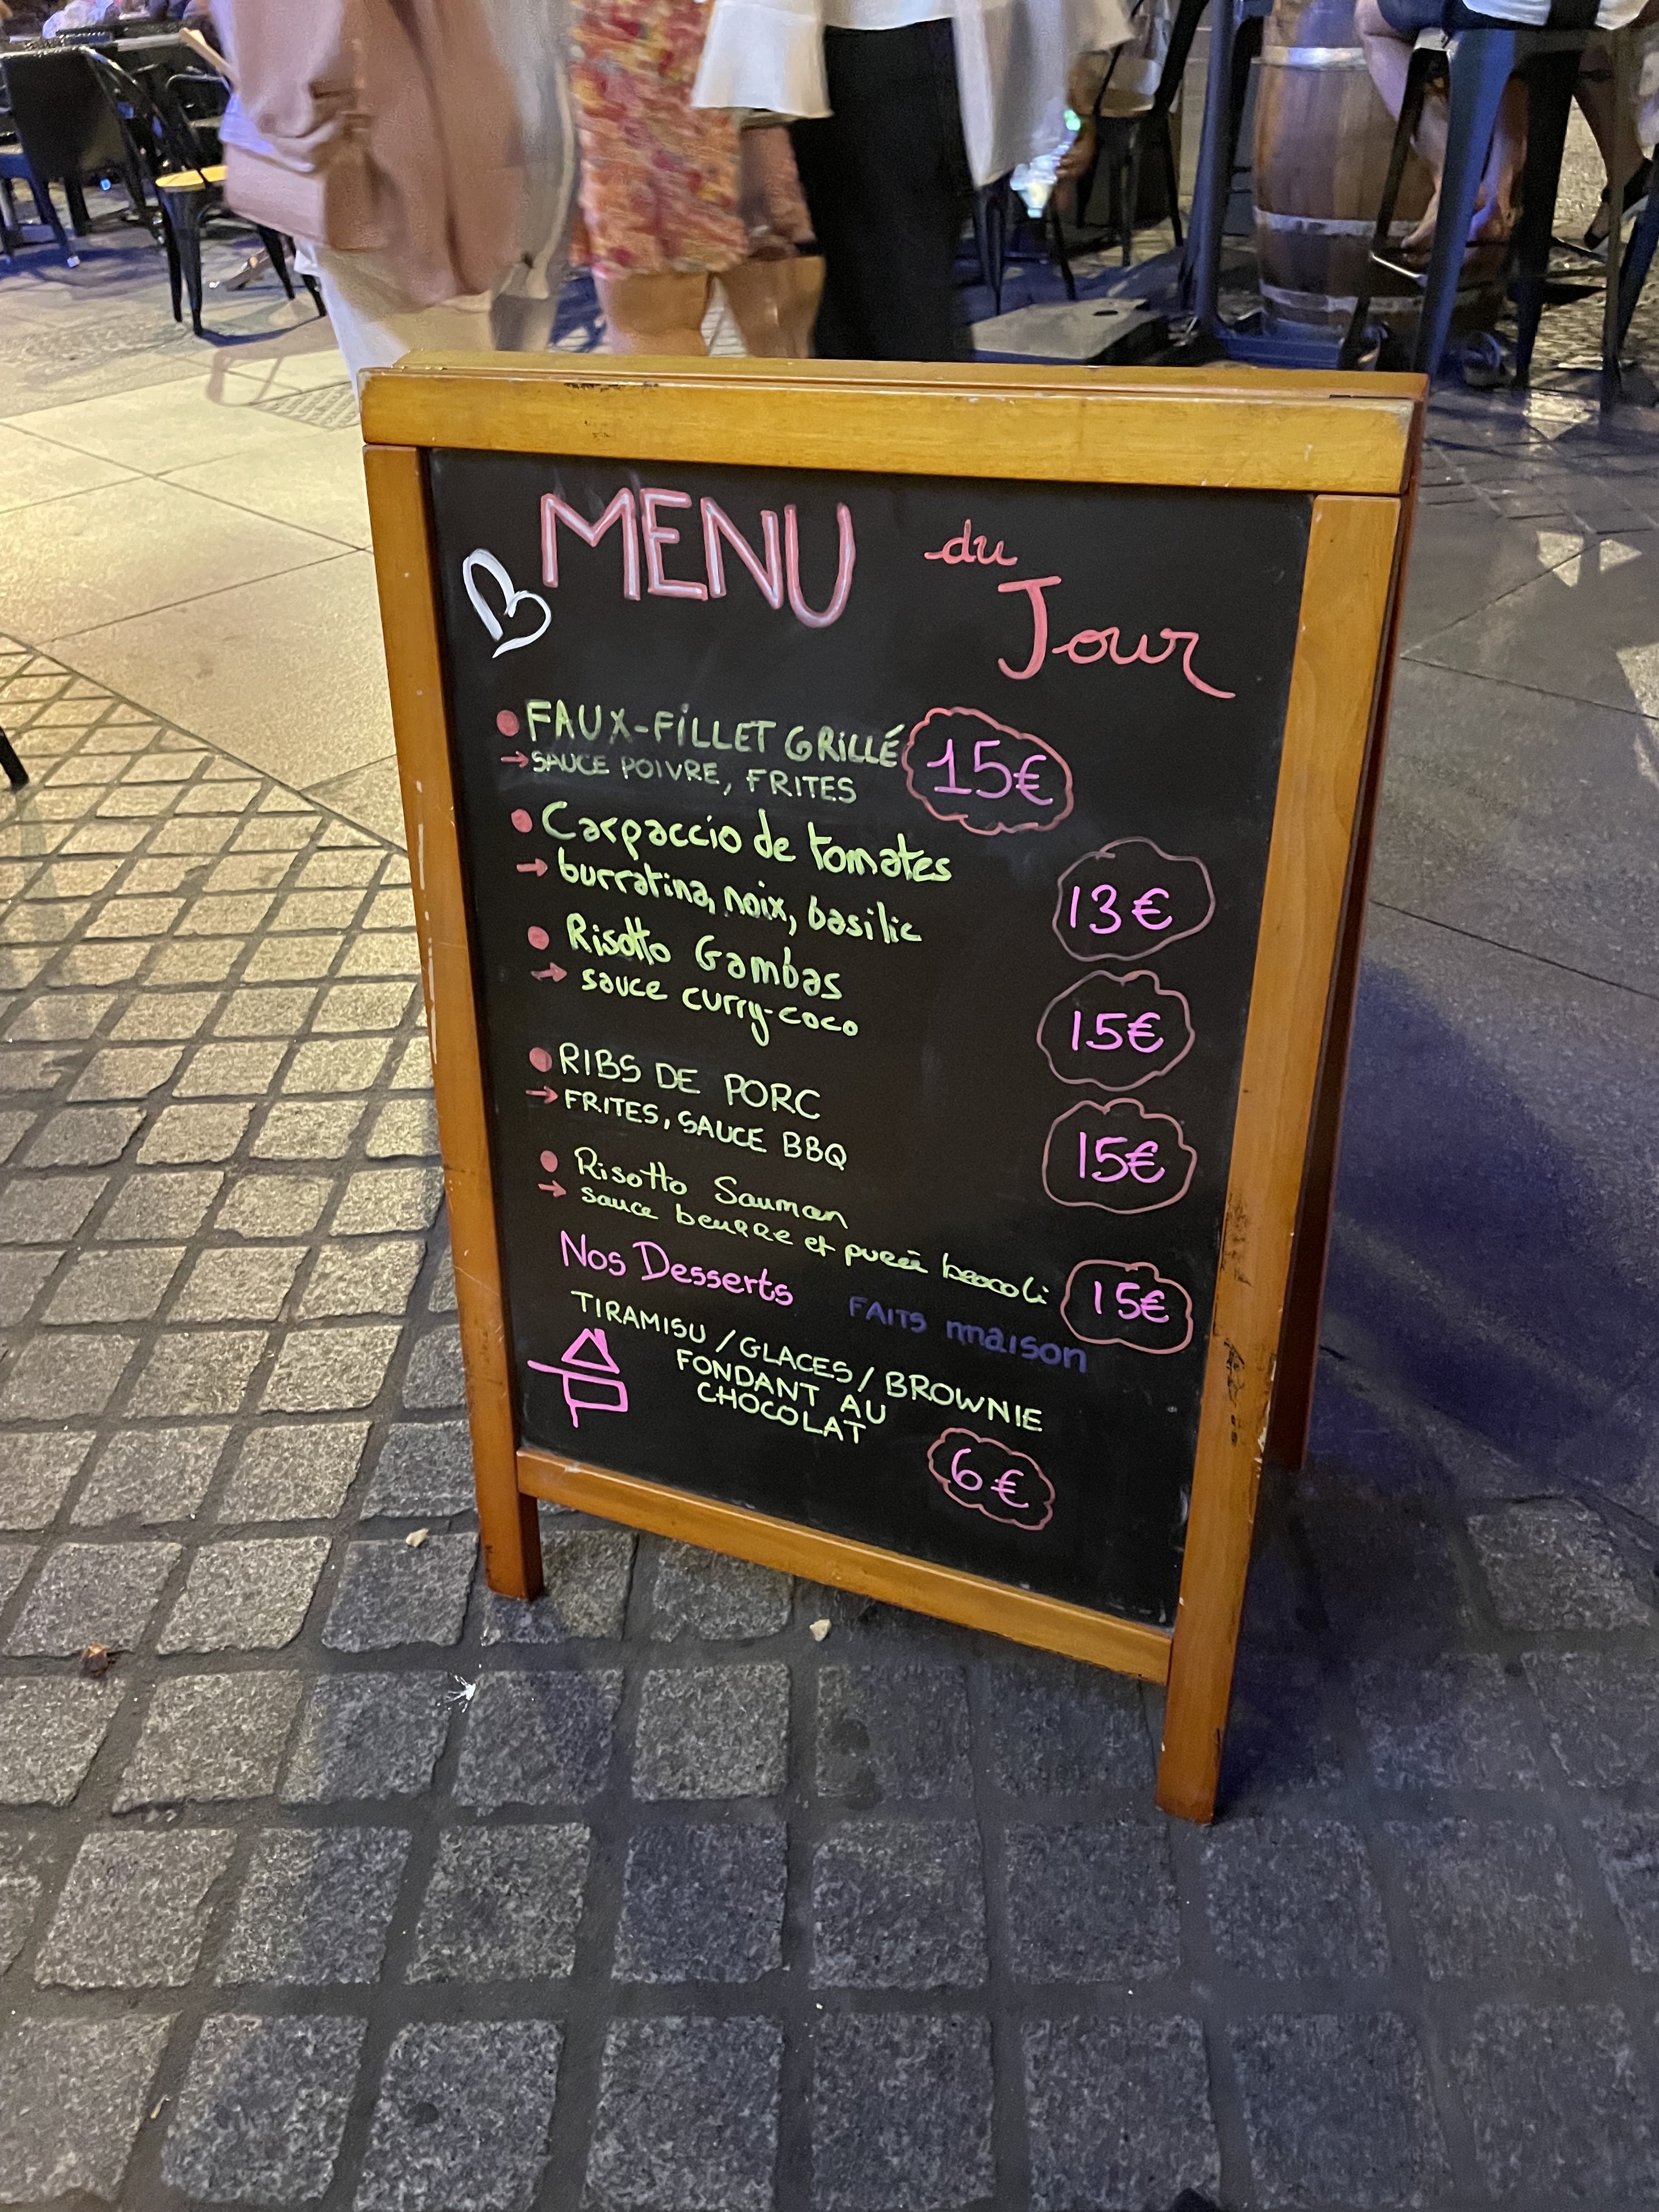 MENU du
Jour
FAUX-FILLET GRILLÉ 15€
→ SAUCE POIVRE, FRITES
Carpaccio de tomates
→ burratina, noix, basilic 13€
Risotto Gambas
→ sauce curry-coco 15€
RIBS DE PORC
→ FRITES, SAUCE BBQ 15€
Risotto Saumon
→ sauce beurre et pureé brocoli 15€
Nos Desserts FAITS maison
TIRAMISU / GLACES / BROWNIE
FONDANT AU
CHOCOLAT
6€